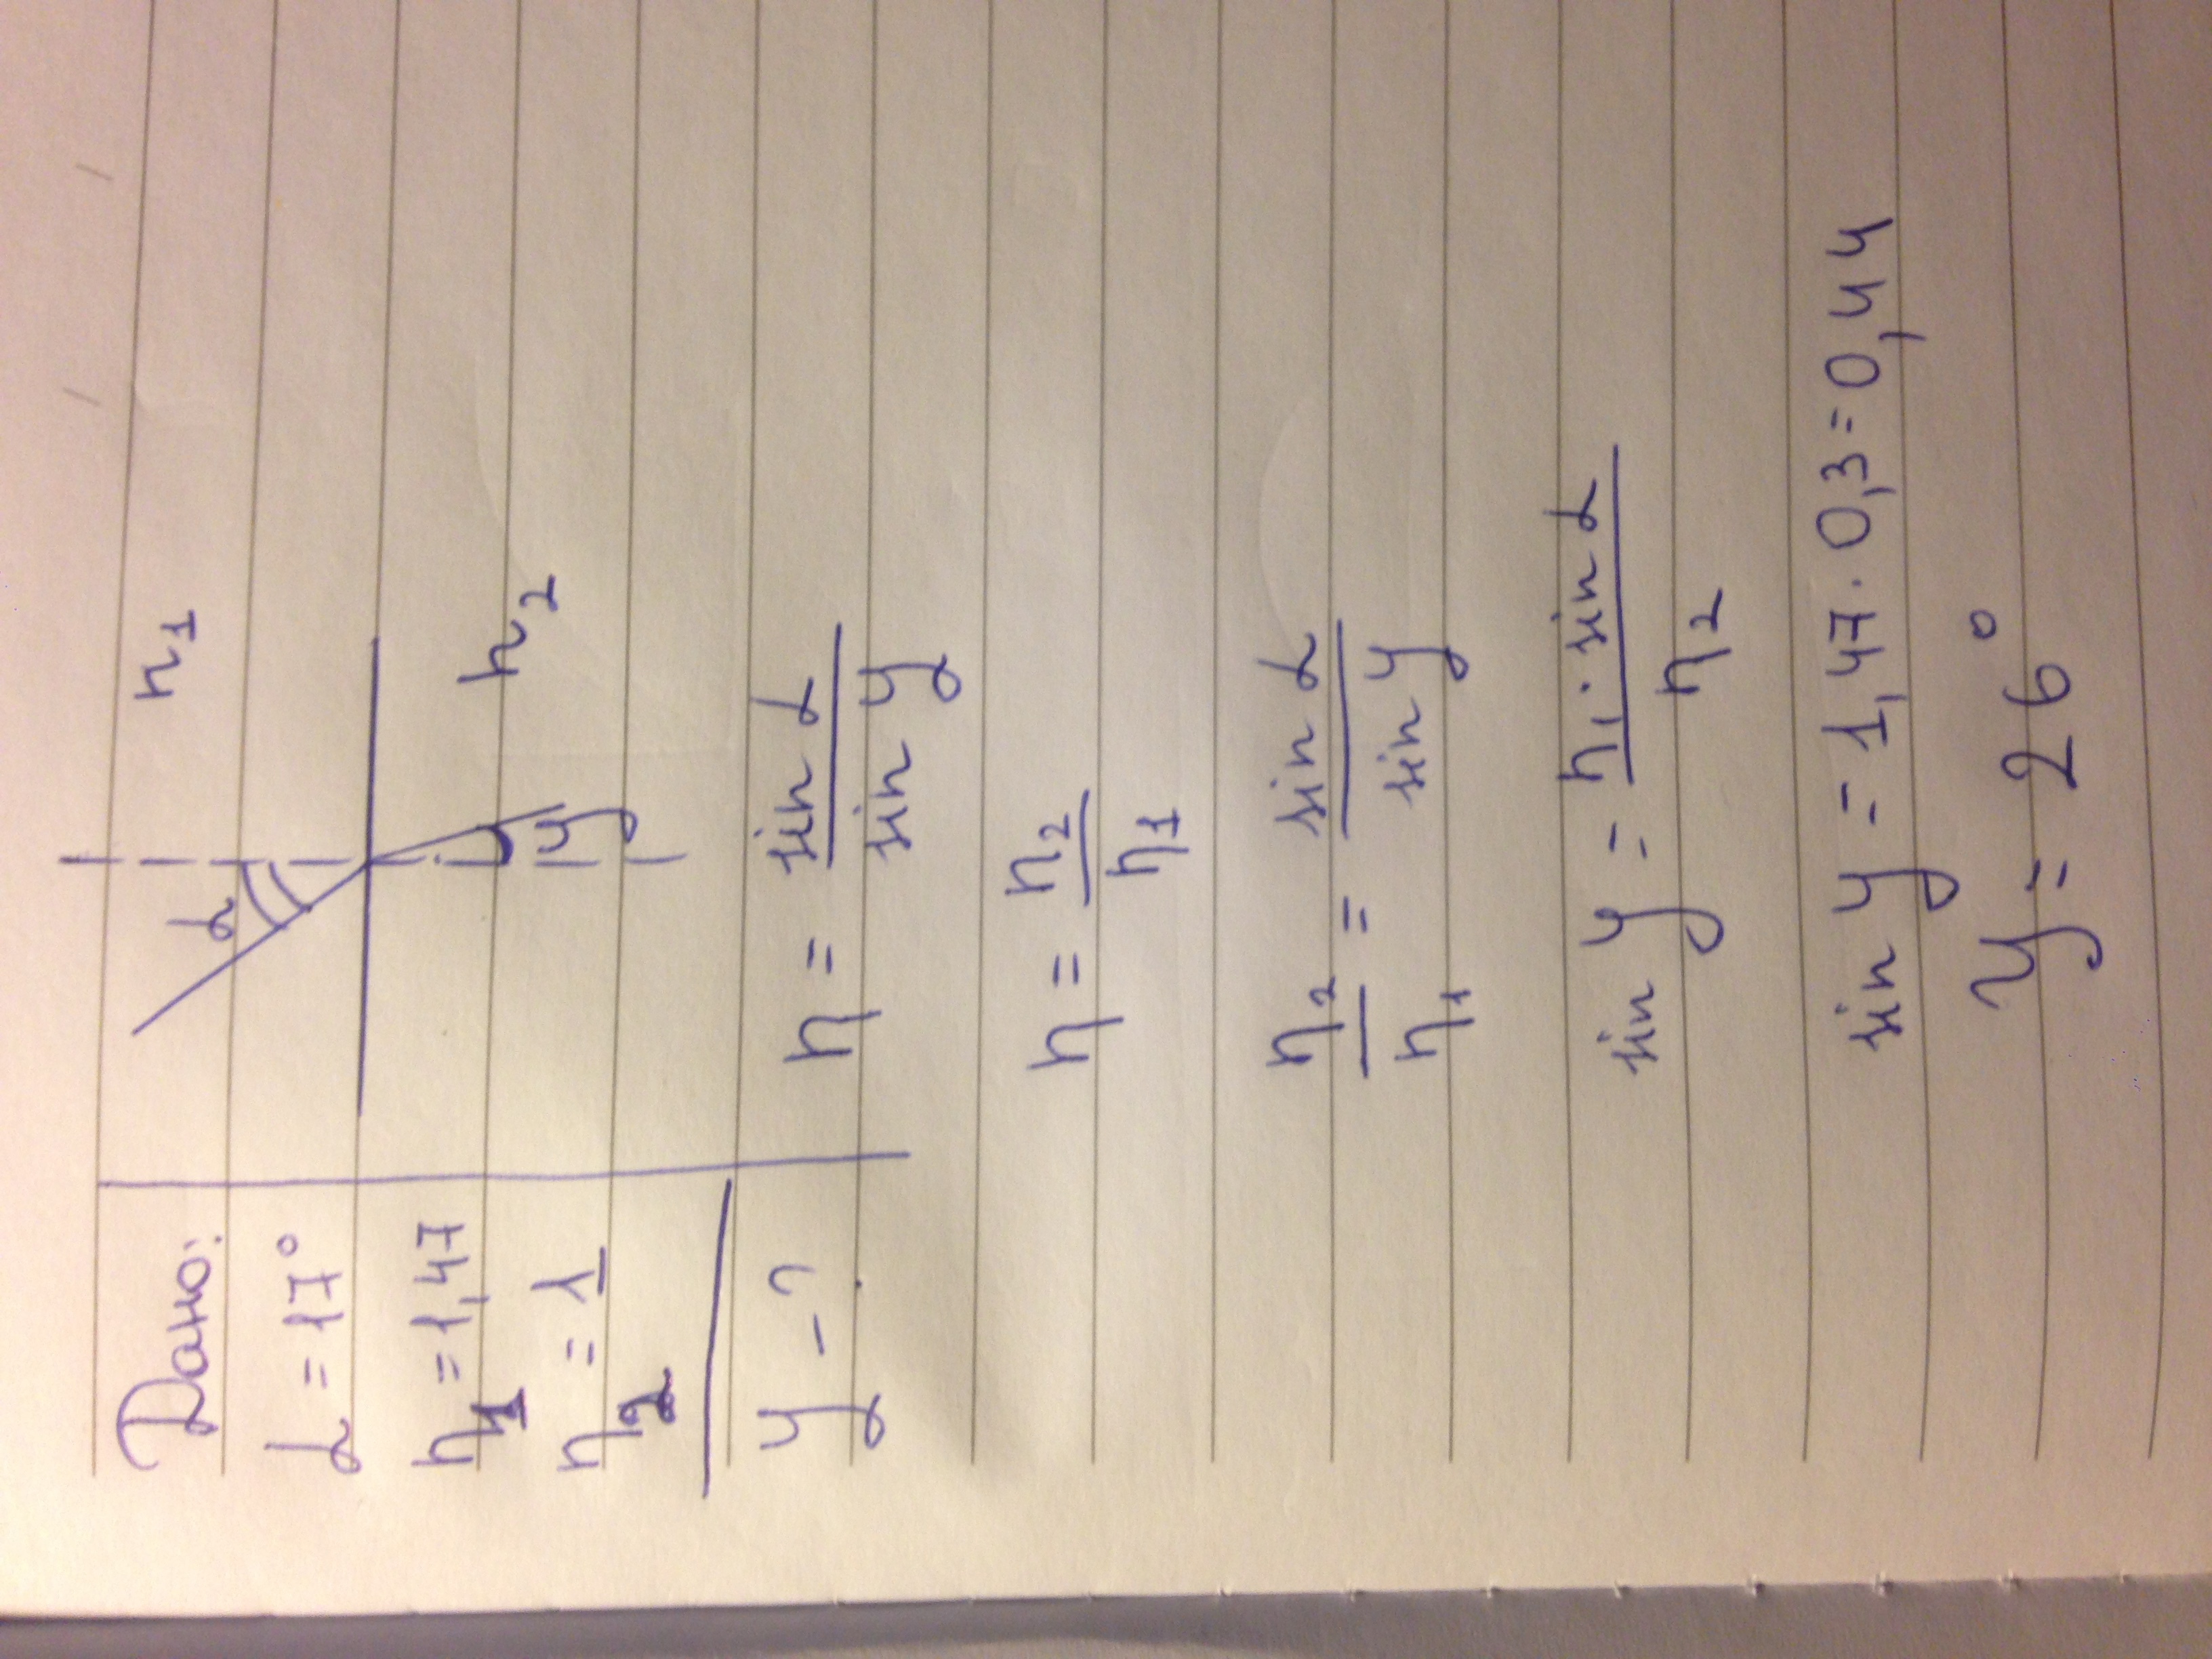 Дано:
α = 17°
n₁ = 1,47
n₂ = 1
y - ?
α
n₁
y
n₂
n = sin α / sin y
n = n₂ / n₁
n₂ / n₁ = sin α / sin y
sin y = n₁ · sin α / n₂
sin y = 1,47 · 0,3 = 0,44
y = 26°